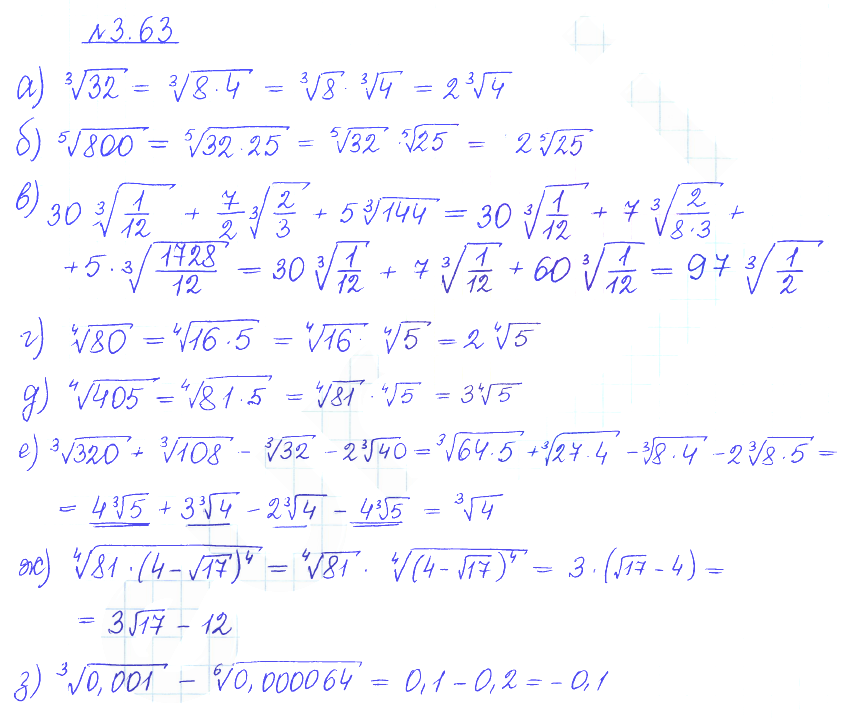 №3.63
а) ∛32 = ∛(8·4) = ∛8 · ∛4 = 2∛4
б) ⁵√800 = ⁵√(32·25) = ⁵√32 · ⁵√25 = 2 ⁵√25
в) 30 ∛(1/12) + 7/2 ∛(2/3) + 5∛144 = 30 ∛(1/12) + 7 ∛(2/(8·3)) +
+ 5·∛(1728/12) = 30 ∛(1/12) + 7 ∛(1/12) + 60 ∛(1/12) = 97 ∛(1/2)
г) ⁴√80 = ⁴√(16·5) = ⁴√16 · ⁴√5 = 2 ⁴√5
д) ⁴√405 = ⁴√(81·5) = ⁴√81 · ⁴√5 = 3⁴√5
е) ∛320 + ∛108 - ∛32 - 2∛40 = ∛(64·5) + ∛(27·4) - ∛(8·4) - 2∛(8·5) =
= 4∛5 + 3∛4 - 2∛4 - 4∛5 = ∛4
ж) ⁴√(81·(4-√17)⁴) = ⁴√81 · ⁴√((4-√17)⁴) = 3·(√17-4) =
= 3√17 - 12
з) ∛0,001 - ⁶√0,000064 = 0,1 - 0,2 = -0,1